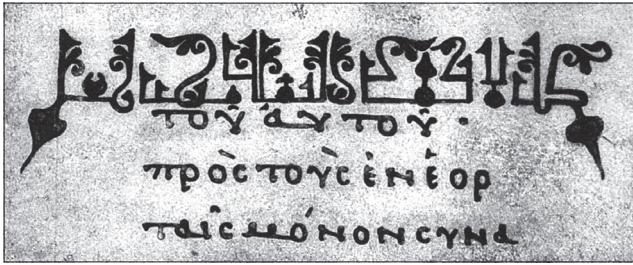 τοῦ αὐτοῦ ·
πρὸς τοὺς ἐν ἑορ
ταῖς μόνον συνα